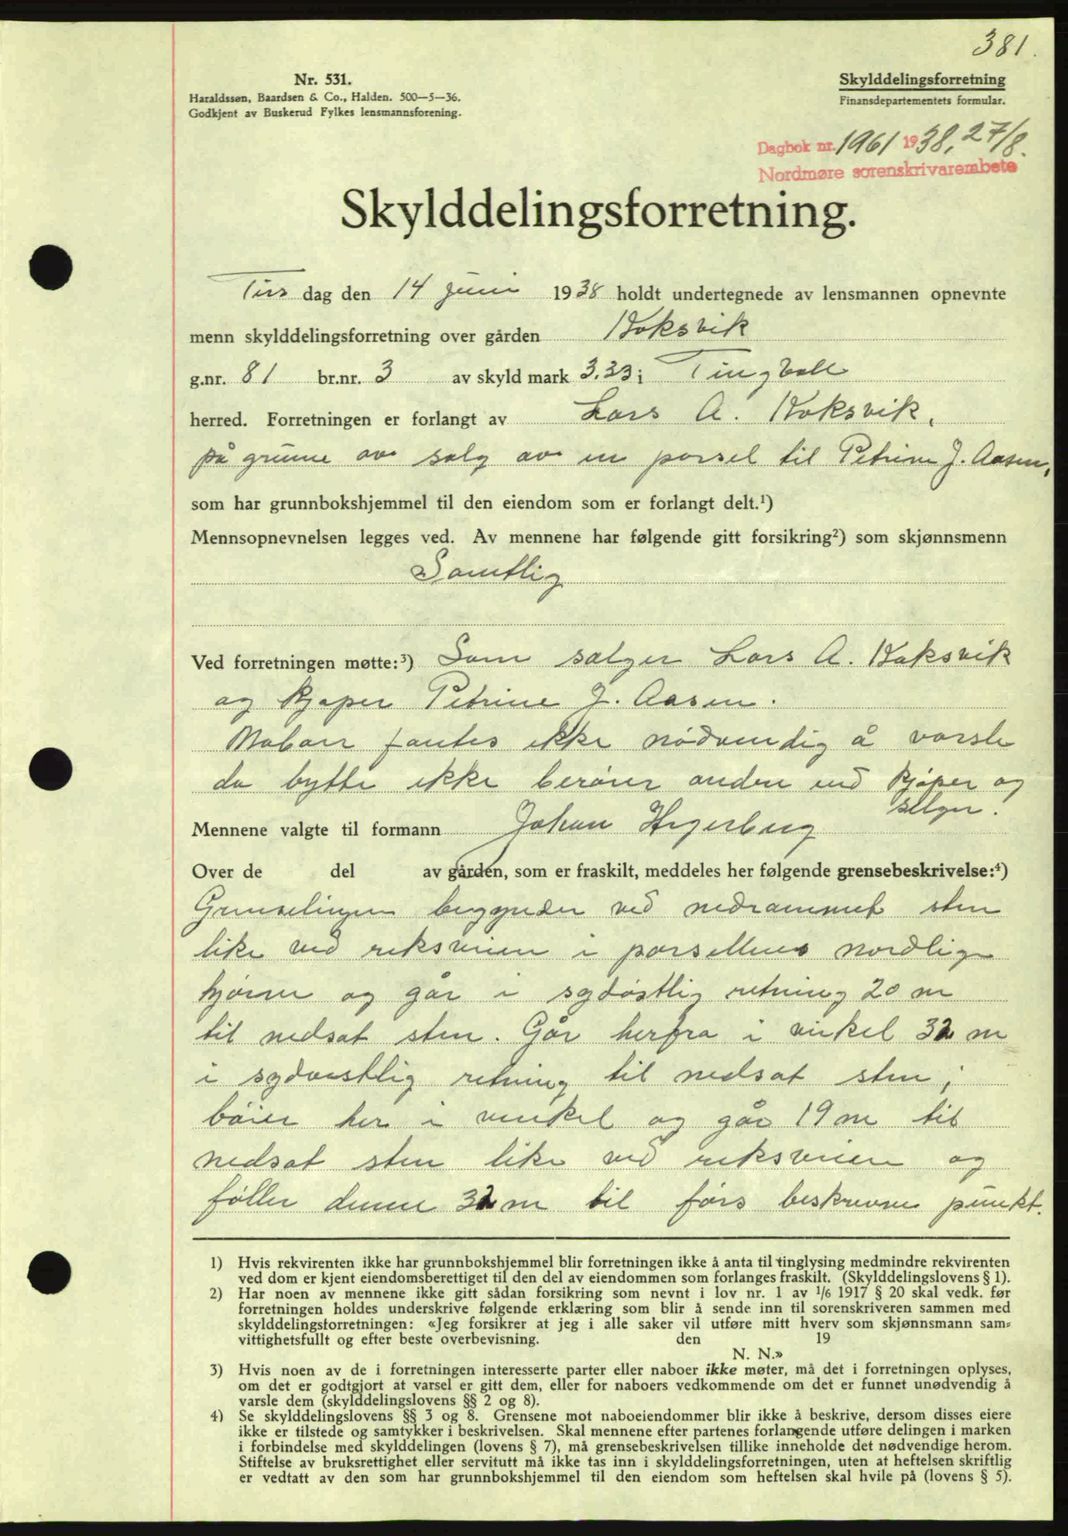 381.
Nr. 531.
Haraldssøn, Baardsen & Co., Halden. 500—5—36.
Godkjent av Buskerud Fylkes lensmannsforening.
Skylddelingsforretning
Finansdepartementets formular.
Dagbok nr. 1961 1938, 27/8.
Nordmøre sorenskrivarembete
Skylddelingsforretning.
Tirs dag den 14 juni 1938 holdt undertegnede av lensmannen opnevnte
menn skylddelingsforretning over gården Koksvik
g.nr. 81 br.nr. 3 av skyld mark 3.33 i Tingvoll
herred. Forretningen er forlangt av Lars A. Koksvik,
på grunn av salg av en parsel til Petrine J. Aasen,
som har grunnbokshjemmel til den eiendom som er forlangt delt.¹)
Mennsopnevnelsen legges ved. Av mennene har følgende gitt forsikring²) som skjønnsmenn
Samtlig
Ved forretningen møtte:³) Som selger Lars A. Koksvik
og kjøper Petrine J. Aasen.
Naboer fantes ikke nødvendig å varsle
da bytte ikke berører andre end kjøper og
selger.
Mennene valgte til formann Johan Hegerberg
Over de del av gården, som er fraskilt, meddeles her følgende grensebeskrivelse:⁴)
Grenselinjen begynder ved nedrammet sten
like ved riksveien i parsellens nordlige
hjørne og går i sydøstlig retning 20 m
til nedsat sten. Går herfra i vinkel 32 m
i sydvestlig retning til nedsat sten,
bøier her i vinkel og går 19 m til
nedsat sten like ved riksveien og
føller denne 32 m til førs beskrevne punkt.
1) Hvis rekvirenten ikke har grunnbokshjemmel blir forretningen ikke å anta til tinglysing medmindre rekvirenten
ved dom er kjent eiendomsberettiget til den del av eiendommen som forlanges fraskilt. (Skylddelingslovens § 1).
2) Har noen av mennene ikke gitt sådan forsikring som nevnt i lov nr. 1 av 1/6 1917 § 20 skal vedk. før
forretningen holdes underskrive følgende erklæring som blir å sende inn til sorenskriveren sammen med
skylddelingsforretningen: «Jeg forsikrer at jeg i alle saker vil utføre mitt hverv som skjønnsmann sam-
vittighetsfullt og efter beste overbevisning. den 19
N. N.»
3) Hvis noen av de i forretningen interesserte parter eller naboer ikke møter, må det i forretningen oplyses,
om det er godtgjort at varsel er gitt dem, eller for naboers vedkommende om det er funnet unødvendig å
varsle dem (skylddelingslovens §§ 2 og 8).
4) Se skylddelingslovens §§ 3 og 8. Grensene mot naboeiendommer blir ikke å beskrive, dersom disses eiere
ikke er tilstede og samtykker i beskrivelsen. Skal mennene efter partenes forlangende utføre delingen i marken
i forbindelse med skylddelingen (lovens § 7), må grensebeskrivelsen tillike inneholde det nødvendige herom.
Stiftelse av bruksrettighet eller servitutt må ikke tas inn i skylddelingsforretningen, uten at heftelsen skriftlig
er vedtatt av den som har grunnbokshjemmel til den eiendom som heftelsen skal hvile på (lovens § 5).